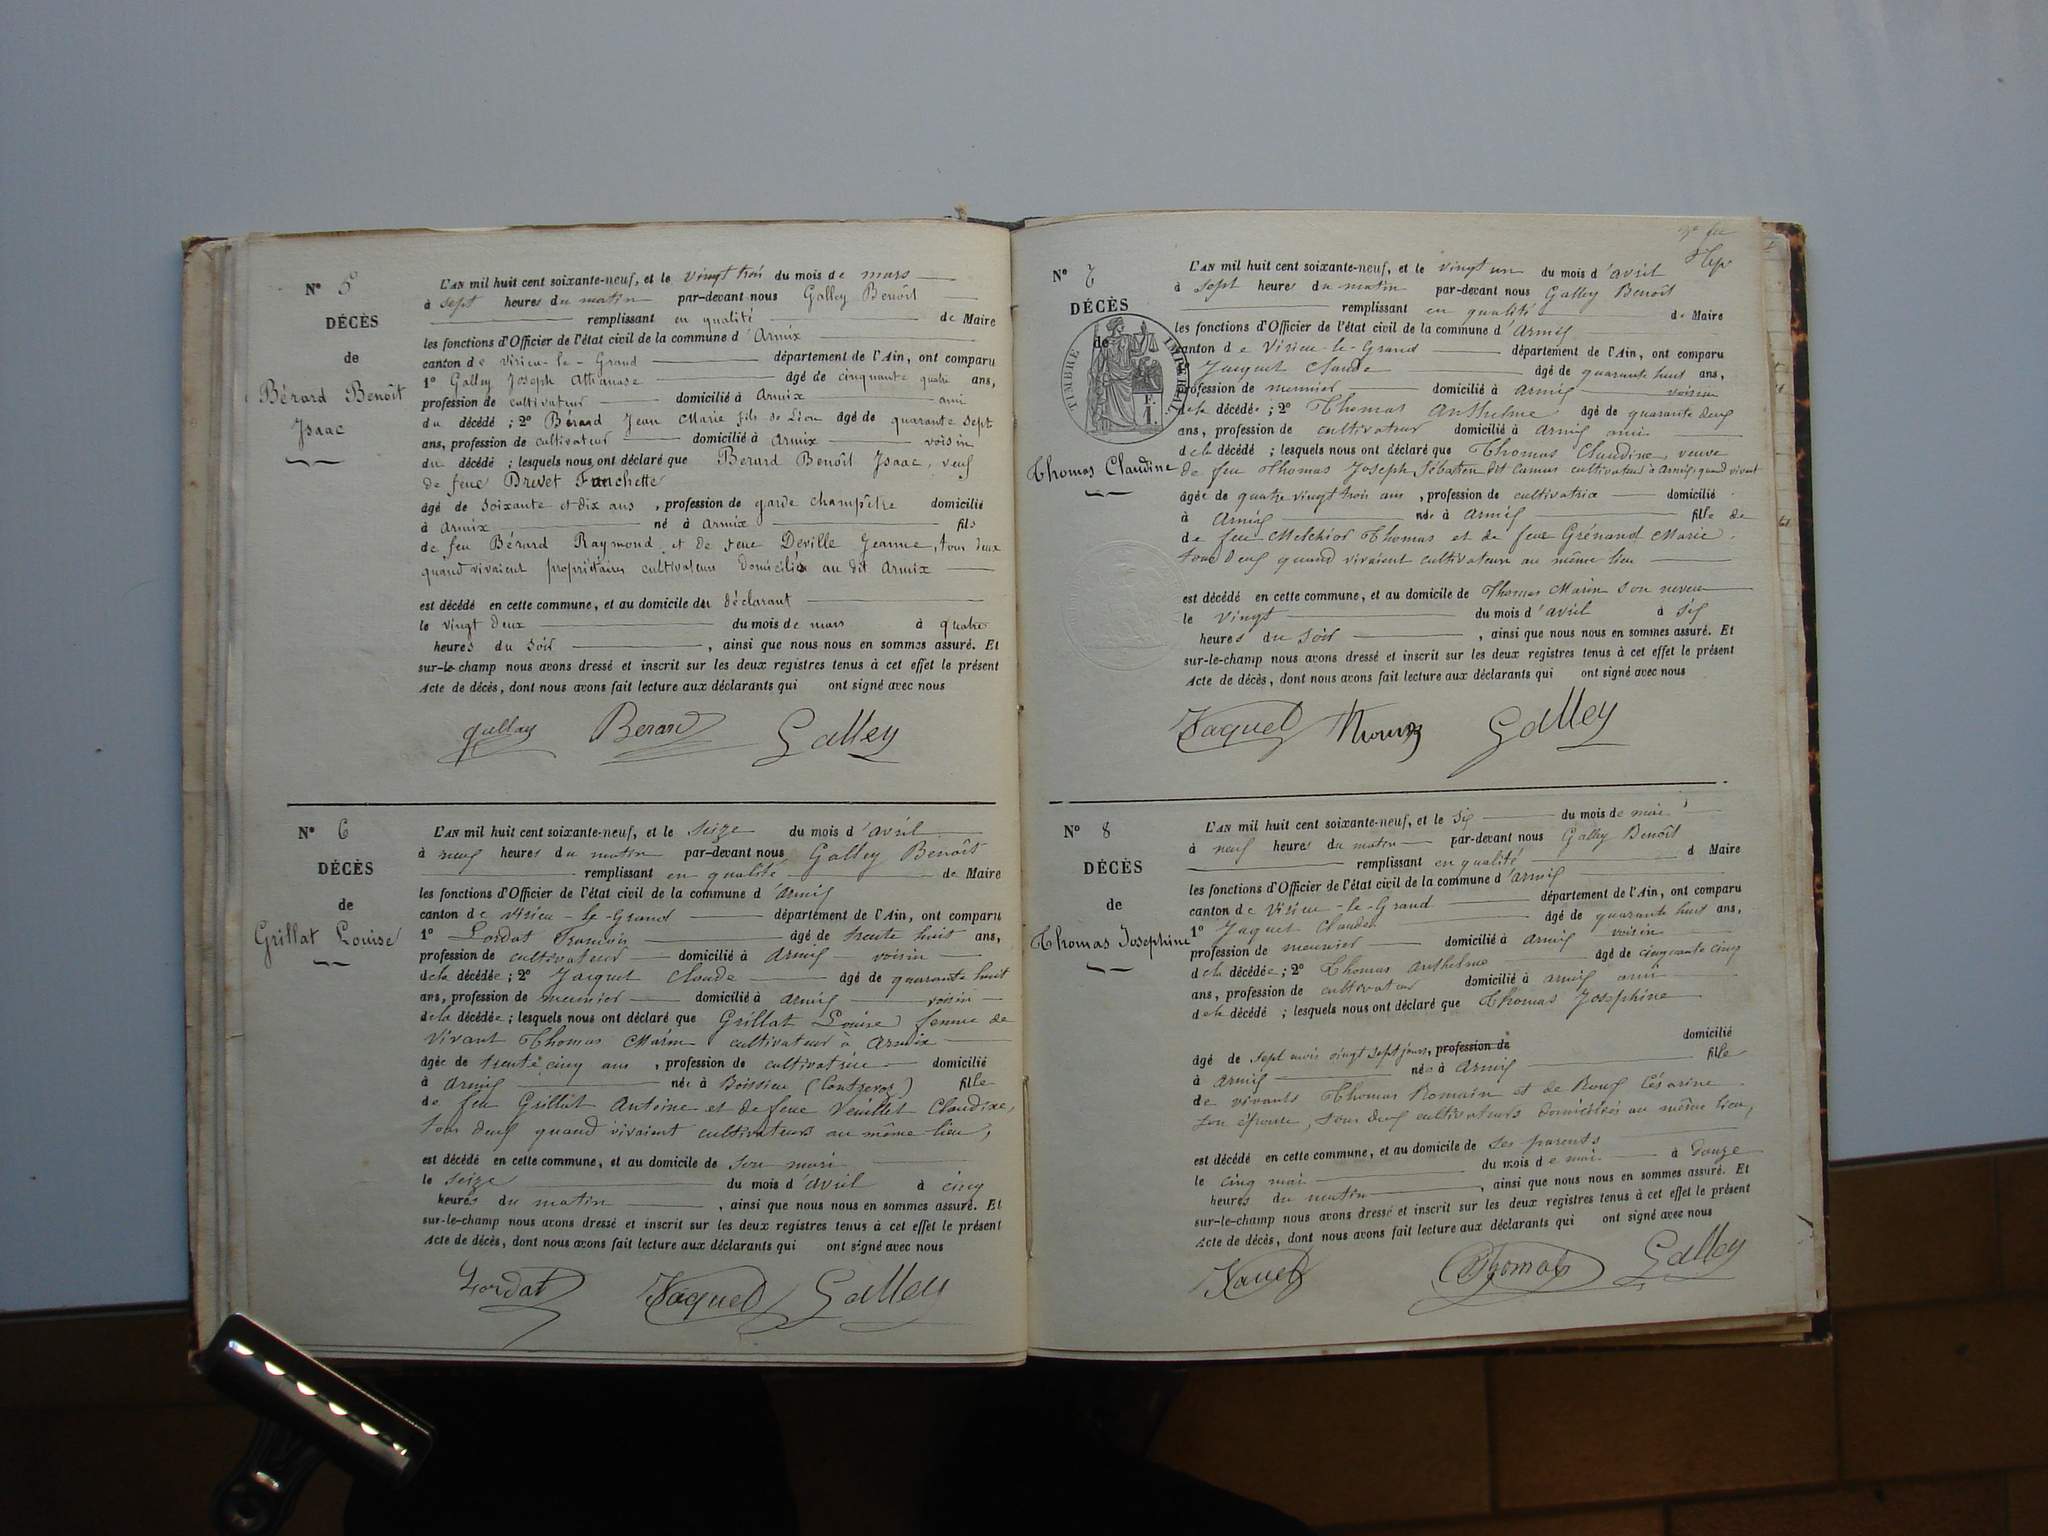 N° 5
DÉCÈS
de
Bérard Benoît
Isaac
L'AN mil huit cent soixante-neuf, et le vingt trois du mois de mars
à sept heures du matin par-devant nous Galley Benoît
remplissant en qualité de Maire
les fonctions d'Officier de l'état civil de la commune d'Armix
canton de Virieu-le-Grand département de l'Ain, ont comparu
1° Galley Joseph Athanase âgé de cinquante quatre ans,
profession de cultivateur domicilié à Armix ami
du décédé ; 2° Bérard Jean Marie fils de Léon âgé de quarante sept
ans, profession de cultivateur domicilié à Armix voisin
du décédé ; lesquels nous ont déclaré que Berard Benoît Isaac, veuf
de feue Brevet Fanchette
âgé de soixante et dix ans , profession de garde champêtre domicilié
à Armix né à Armix fils
de feu Bérard Raymond et de feue Deville Jeanne, tous deux
quand vivaient propriétaires cultivateurs domiciliés au dit Armix
est décédé en cette commune, et au domicile du déclarant
le vingt deux du mois de mars à quatre
heures du soir , ainsi que nous nous en sommes assuré. Et
sur-le-champ nous avons dressé et inscrit sur les deux registres tenus à cet effet le présent
Acte de décès, dont nous avons fait lecture aux déclarants qui ont signé avec nous
Berard Galley
N° 6
DÉCÈS
de
Grillat Louise
L'AN mil huit cent soixante-neuf, et le seize du mois d'avril
à neuf heures du matin par-devant nous Galley Benoît
remplissant en qualité de Maire
les fonctions d'Officier de l'état civil de la commune d'Armix
canton de Virieu-le-Grand département de l'Ain, ont comparu
1° Lordat François âgé de trente huit ans,
profession de cultivateur domicilié à Armix voisin
de la décédée ; 2° Jacquet Claude âgé de quarante huit
ans, profession de meunier domicilié à Armix voisin
de la décédée ; lesquels nous ont déclaré que Grillat Louise femme de
vivant Thomas Marin cultivateur à Armix
âgée de trente cinq ans , profession de cultivatrice domicilié
à Armix née à Boissieu (Contrevoz) fille
de feu Grillat Antoine et de feue Veuillet Claudine,
tous deux quand vivaient cultivateurs au même lieu,
est décédé en cette commune, et au domicile de son mari
le seize du mois d'avril à cinq
heures du matin , ainsi que nous nous en sommes assuré. Et
sur-le-champ nous avons dressé et inscrit sur les deux registres tenus à cet effet le présent
Acte de décès, dont nous avons fait lecture aux déclarants qui ont signé avec nous
Lordat Jaquet Galley
N° 7
DÉCÈS
de
TIMBRE IMPÉRIAL
F. 1.
Thomas Claudine
L'AN mil huit cent soixante-neuf, et le vingt un du mois d'avril
à sept heures du matin par-devant nous Galley Benoît
remplissant en qualité de Maire
les fonctions d'Officier de l'état civil de la commune d'Armix
canton de Virieu-le-Grand département de l'Ain, ont comparu
Jacquet Claude âgé de quarante huit ans,
profession de meunier domicilié à Armix voisin
de la décédée ; 2° Thomas Anthelme âgé de quarante deux
ans, profession de cultivateur domicilié à Armix ami
de la décédé ; lesquels nous ont déclaré que Thomas Claudine, veuve
de feu Thomas Joseph Sébastien dit Camus cultivateur à Armix quand vivait
âgée de quatre vingt trois ans , profession de cultivatrice domicilié
à Armix née à Armix fille de
de feu Melchior Thomas et de feue Grénand Marie,
tous deux quand vivaient cultivateurs au même lieu
est décédé en cette commune, et au domicile de Thomas Marin son neveu
le vingt du mois d'avril à six
heures du soir , ainsi que nous nous en sommes assuré. Et
sur-le-champ nous avons dressé et inscrit sur les deux registres tenus à cet effet le présent
Acte de décès, dont nous avons fait lecture aux déclarants qui ont signé avec nous
Jaquet Thomas Galley
N° 8
DÉCÈS
de
Thomas Josephine
L'AN mil huit cent soixante-neuf, et le six du mois de mai
à neuf heures du matin par-devant nous Galley Benoît
remplissant en qualité d Maire
les fonctions d'Officier de l'état civil de la commune d'Armix
canton de Virieu-le-Grand département de l'Ain, ont comparu
1° Jaquet Claude âgé de quarante huit ans,
profession de meunier domicilié à Armix voisin
de la décédée ; 2° Thomas Anthelme âgé de cinquante cinq
ans, profession de cultivateur domicilié à Armix ami
de la décédé ; lesquels nous ont déclaré que Thomas Josephine
âgé de sept mois vingt sept jours, profession de domicilié
à Armix née à Armix fille
de vivants Thomas Romain et de Roux Césarine
son épouse, tous deux cultivateurs domiciliés au même lieu,
est décédé en cette commune, et au domicile de ses parents
le cinq mai du mois de mai à douze
heures du matin , ainsi que nous nous en sommes assuré. Et
sur-le-champ nous avons dressé et inscrit sur les deux registres tenus à cet effet le présent
Acte de décès, dont nous avons fait lecture aux déclarants qui ont signé avec nous
Thomas Galley